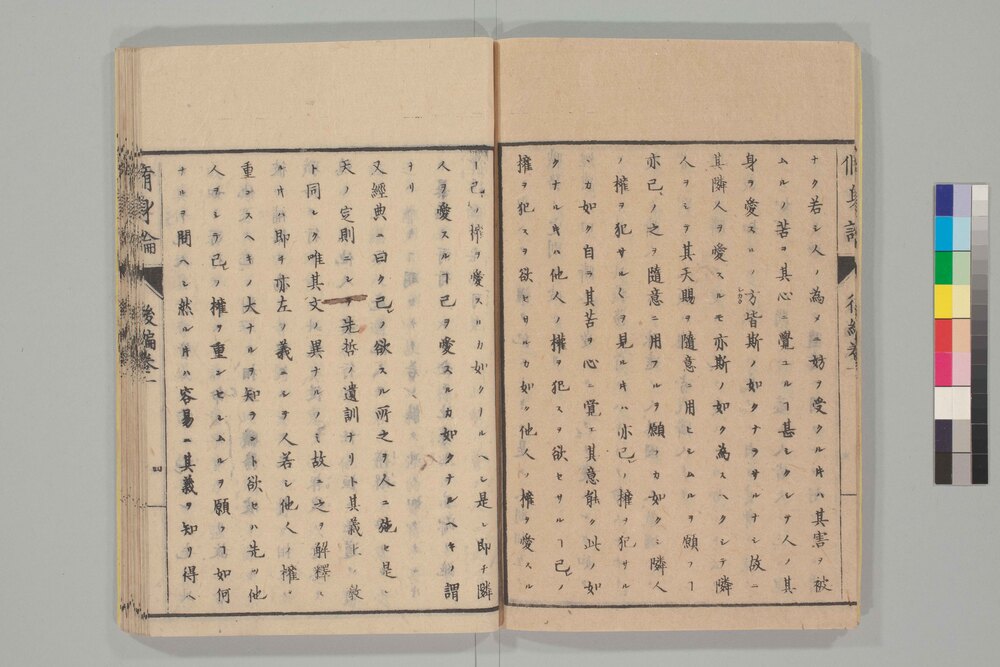 ナク若シ人ノ為メニ妨ヲ受クル片ハ其害ヲ被
ムルノ苦ヲ其心ニ覺ユルヿ甚シクシテ人ノ其
身ヲ愛スルノ方皆斯ノ如クナラサルナシ故ニ
其隣人ヲ愛スルモ亦斯ノ如ク為スヘクシテ隣
人ヲシテ其天賜ヲ隨意ニ用ヒシムルヲ願フヿ
亦己レノ之ヲ隨意ニ用フルヲ願フカ如クシ隣人
ノ權ヲ犯サルヽヲ見ル片ハ亦己レノ權ヲ犯サル
ヽカ如ク自ラ其苦ヲ心ニ覺エ其意能ク此ノ如
クナル片ハ他人ノ權ヲ犯スヲ欲セサルヿ己レノ
權ヲ犯スヲ欲セサルカ如ク他人ノ權ヲ愛スル
ヿ己レノ權ヲ愛スルカ如クナルヘシ是レ即チ隣
人ヲ愛スルヿ己ヲ愛スルカ如クナルヘキノ謂
ナリ
又經典ニ曰ク己レノ欲スル所之ヲ人ニ施セト是レ
天ノ定則ニシテ先哲ノ遺訓ナリト其義上ノ教
ト同シク唯其文ノ異ナルノミ故ニ之ヲ解釋ス
ル片ハ即チ亦左ノ義ニシテ人若シ他人ノ權ノ
重ンスヘキノ大ナルヲ知ラント欲セハ先ツ他
人ヲシテ己レノ權ヲ重ンセシムルヲ願フヿ如何
ナルヲ問ヘシ然ル片ハ容易ニ其義ヲ知リ得ヘ
脩身論
後編卷一
四